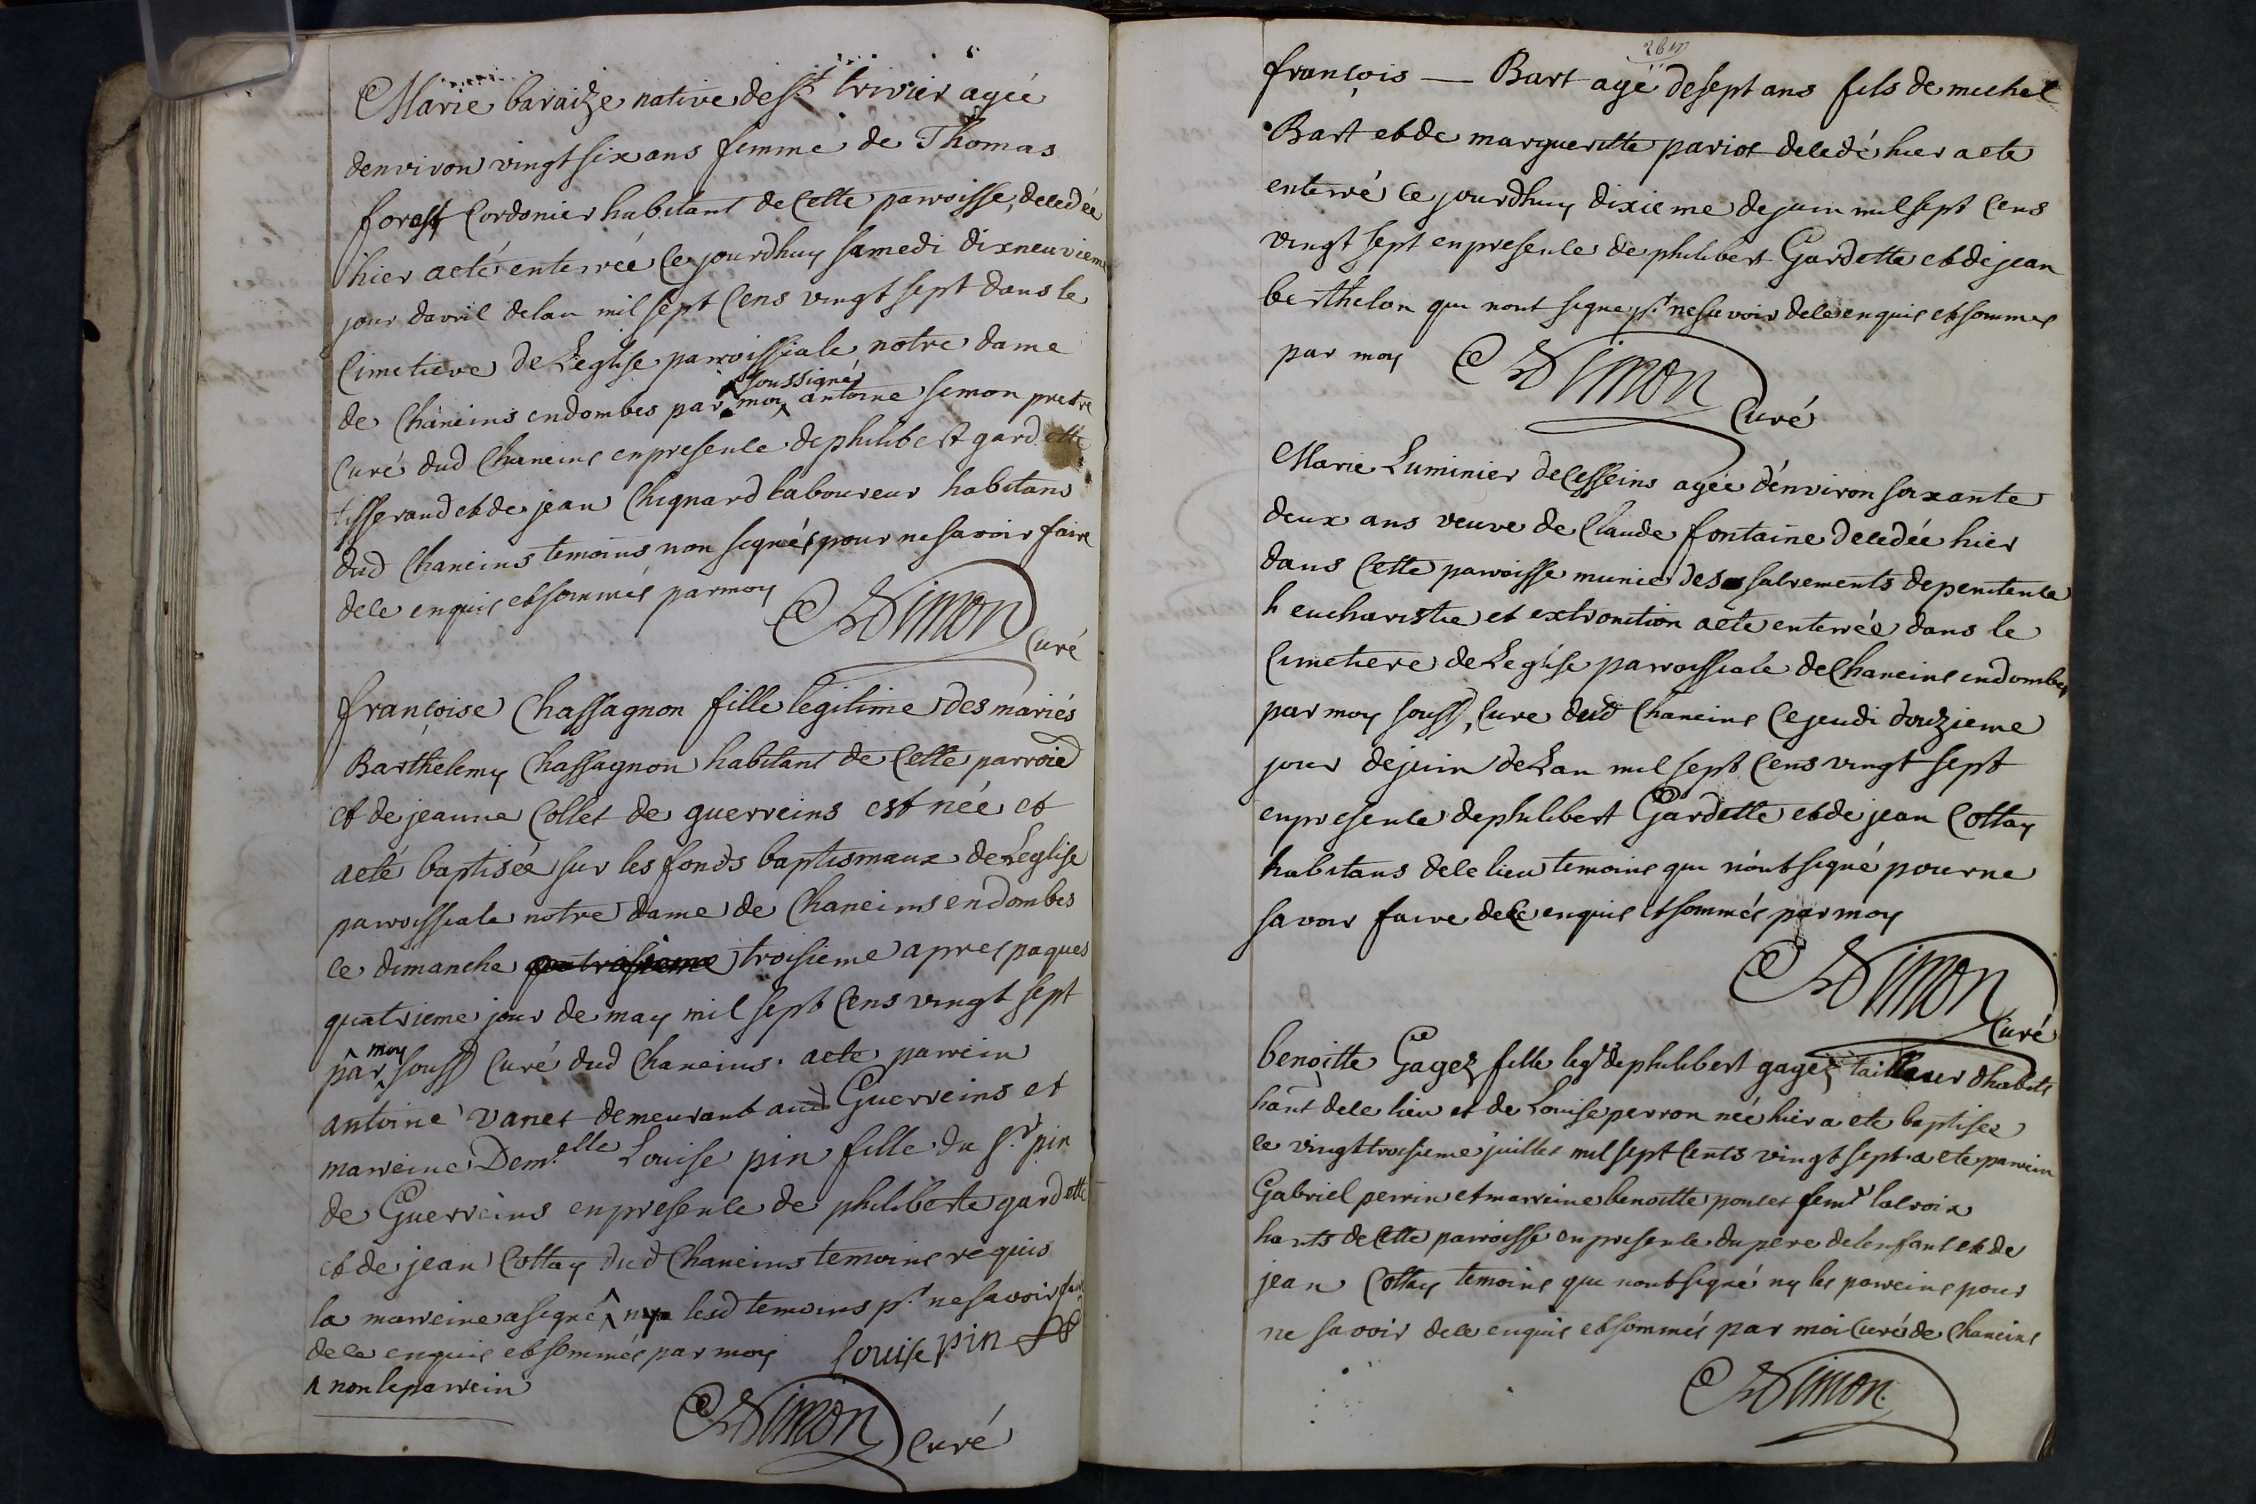 Marie baraize native de st trivier agée
denviron vingt six ans femme de Thomas
forest Cordonier habitant de Cette parroisse, decedée
hier aeté enterrée Ce jourdhuy samedi dixneuvieme
jour davril delan mil sept Cens vingt sept dans le
Cimetiere de Leglise parroissiale notre dame
de Chaneins endombes par moy soussigné antoine simon pretre
Curé dud Chaneins enpresence de philibert gardette
tisserand et de jean Chignard laboureur habitans
dud Chaneins temoins non signés pour ne savoir faire
de ce enquis et sommés par moy
Simon Curé
françoise Chassagnon fille legitime des mariés
Barthelemy Chassagnon habitant de Cette parroid
et de jeanne Collet de guerreins est née et
aeté baptisée sur les fonds baptismaux de Leglise
parroissiale notre dame de Chaneins endombes
le dimanche troisieme apres paques
quatrieme jour de may mil sept Cens vingt sept
par moy souss Curé dud Chaneins. aete parrein
antoine vanet demeurant aud Guerreins et
marreine Dem.elle Louise pin fille du s.r pin
de Guerreins enpresence de philiberte gardette
et de jean Cottay dud Chaneins temoins requis
la marreine asigné ^ ny lesd temoins p.r ne savoir faire
de ce enquis et sommés par moy Louise pin
^ non le parrein
Simon Curé
françois — Bart agé de sept ans fils de michel
Bart et de margueritte pariot decedé hier aete
enterré Ce jourdhuy dixieme de juin mil sept Cens
vingt sept enpresence de philibert Gardette et de jean
berthelon qui nont signe p.r ne savoir de ce enquis et sommes
par moy Simon
Curé
Marie Luminier de Cesseins agée d'environ soixante
deux ans veuve de Claude fontaine decedée hier
dans Cette parroisse munie des sacrements de penitence
h eucharistie et extronction aete enterrée dans le
Cimetiere de Leglise parroissiale de Chaneins endombes
par moy souss, Cure dud Chaneins Ce jeudi douzieme
jour de juin de Lan mil sept Cens vingt sept
enpresence de philibert Gardette et de jean Cottay
habitans de ce lieu temoins qui n'ont signé pour ne
savoir faire de Ce enquis et sommés par moy
Simon
Curé
benoitte Gagez fille leg.e de philibert gagez tailleur dhabits
hant de ce lieu et de Louise perron née hier a ete baptisee
le vingt troisieme juillet mil sept Cents vingt sept. a ete parrein
Gabriel perrin et marreine benoitte poncet fem.e lacroix
hants de Cette parroisse enpresence du pere de lenfant et de
jean Cottay temoins qui nont signé ny les parreins pour
ne savoir de ce enquis et sommés par moi Curé de Chaneins
Simon